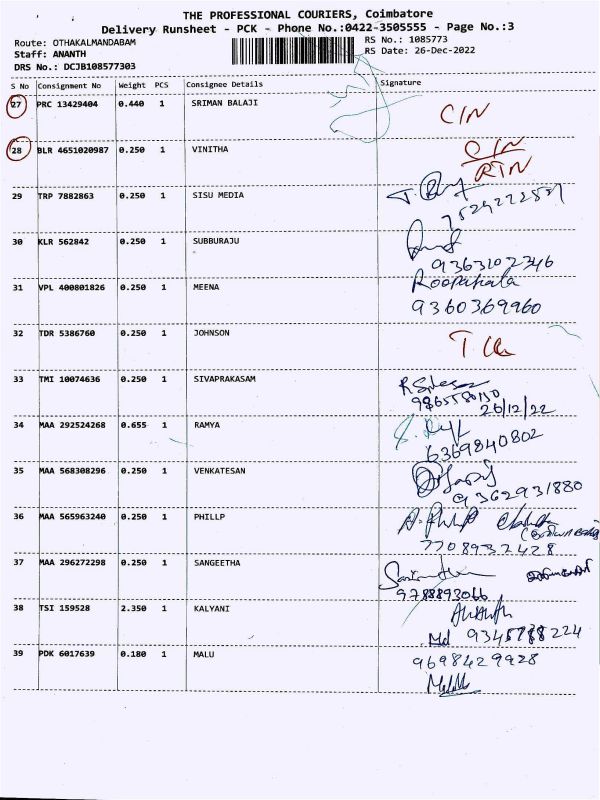 THE PROFESSIONAL COURIERS, Coimbatore
Delivery Runsheet - PCK - Phone No.:0422-3505555 - Page No.:3
Route: OTHAKALMANDABAM
RS No.: 1085773
Staff: ANANTH
RS Date: 26-Dec-2022
DRS No.: DCJB108577303
S No Consignment No Weight PCS Consignee Details Signature
27 PRC 13429404 0.440 1 SRIMAN BALAJI CIN
28 BLR 4651020987 0.250 1 VINITHA
RTN
29 TRP 7882863 0.250 1 SISU MEDIA
30 KLR 562842 0.250 1 SUBBURAJU
9363102346
31 VPL 400801826 0.250 1 MEENA
9360369960
32 TDR 5386760 0.250 1 JOHNSON
33 TMI 10074636 0.250 1 SIVAPRAKASAM
26/12/22
34 MAA 292524268 0.655 1 RAMYA
6369840802
35 MAA 568308296 0.250 1 VENKATESAN
9362931880
36 MAA 565963240 0.250 1 PHILLP
7708937428
37 MAA 296272298 0.250 1 SANGEETHA
9788893066
38 TSI 159528 2.350 1 KALYANI
39 PDK 6017639 0.180 1 MALU
9698429928